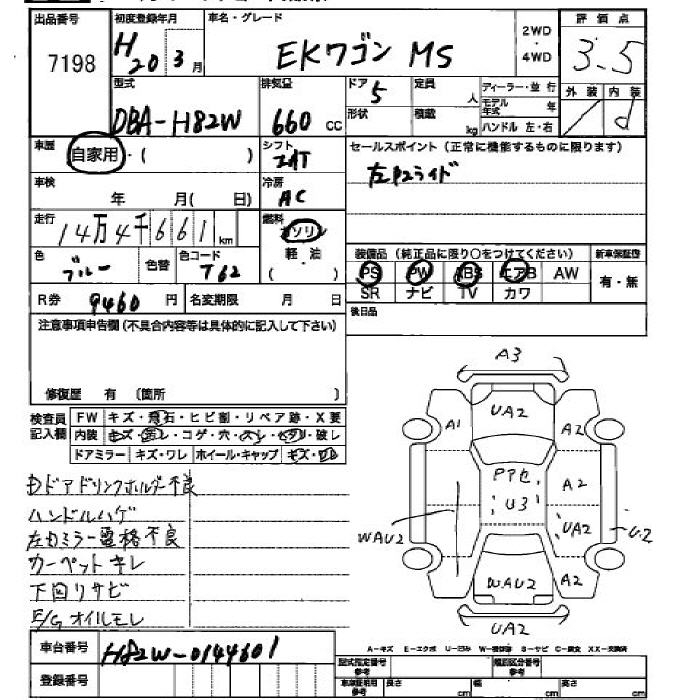 出品番号 7198
初度登録年月 H20 3月
車名・グレード EKワゴン MS
2WD・4WD
評価点 3.5
型式 DBA-H82W
排気量 660 CC
ドア 5
形状
定員 人
積載 kg
ディーラー・並行
モデル年式 年
ハンドル 左・右
外装 内装 d
車歴 自家用・( )
シフト
セールスポイント (正常に機能するものに限ります)
左右スライド
車検 年 月( 日)
冷房 AC
走行 14万4千661km
燃料 ガソリン 軽油 ( )
色 ブルー 色替 色コード T62
装備品 (純正品に限り○をつけてください) 新車保証書
PS PW ABS エアB AW 有・無
SR ナビ TV カワ
R券 9460円 名変期限 月 日
後日品
注意事項申告欄(不具合内容等は具体的に記入して下さい)
修復歴 有 〔箇所 〕
検査員記入欄
FW キズ・飛石・ヒビ割・リペア跡・X要
内装 キズ・汚レ・コゲ・穴・スレ・ヘタリ・破レ
ドアミラー キズ・ワレ ホイール・キャップ キズ・ワレ
右ドアドリンクホルダー不良
ハンドルハゲ
左右ミラー電格不良
カーペットキレ
下回リサビ
E/G オイルモレ
A3
A1 UA2 A2
アアセ
U3
A2
UA2
WAU2
U2
WAU2
A2
UA2
車台番号 H82W-0144601
登録番号
A-キズ E-エクボ U-凹ミ W-補修跡 S-サビ C-腐食 XX-交換済
型式指定番号 参考
類別区分番号 参考
車庫証明用 参考 長さ cm 幅 cm 高さ cm